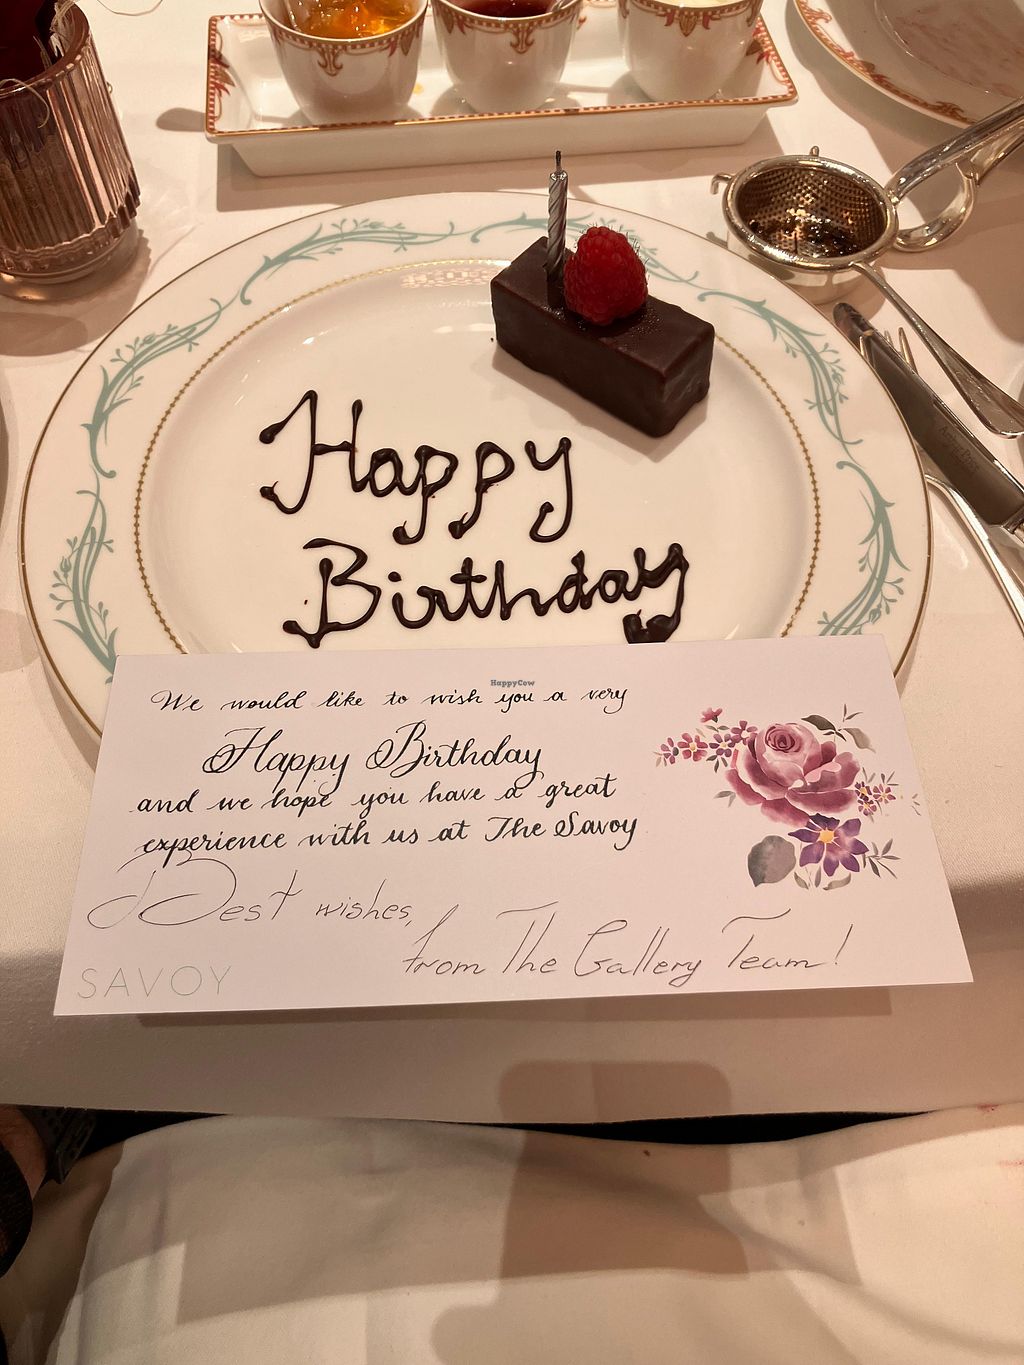 Happy
Birthday
HappyCow
We would like to wish you a very
Happy Birthday
and we hope you have a great
experience with us at The Savoy
Best wishes,
from The Gallery Team!
SAVOY